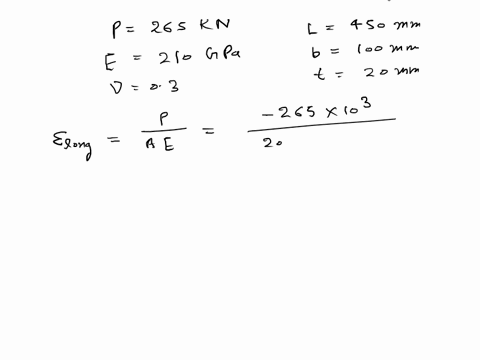 P = 265 KN
E = 210 GPa
ν = 0.3
L = 450 mm
b = 100 mm
t = 20 mm
ε_long = P / AE = -265 × 10^3 / 20